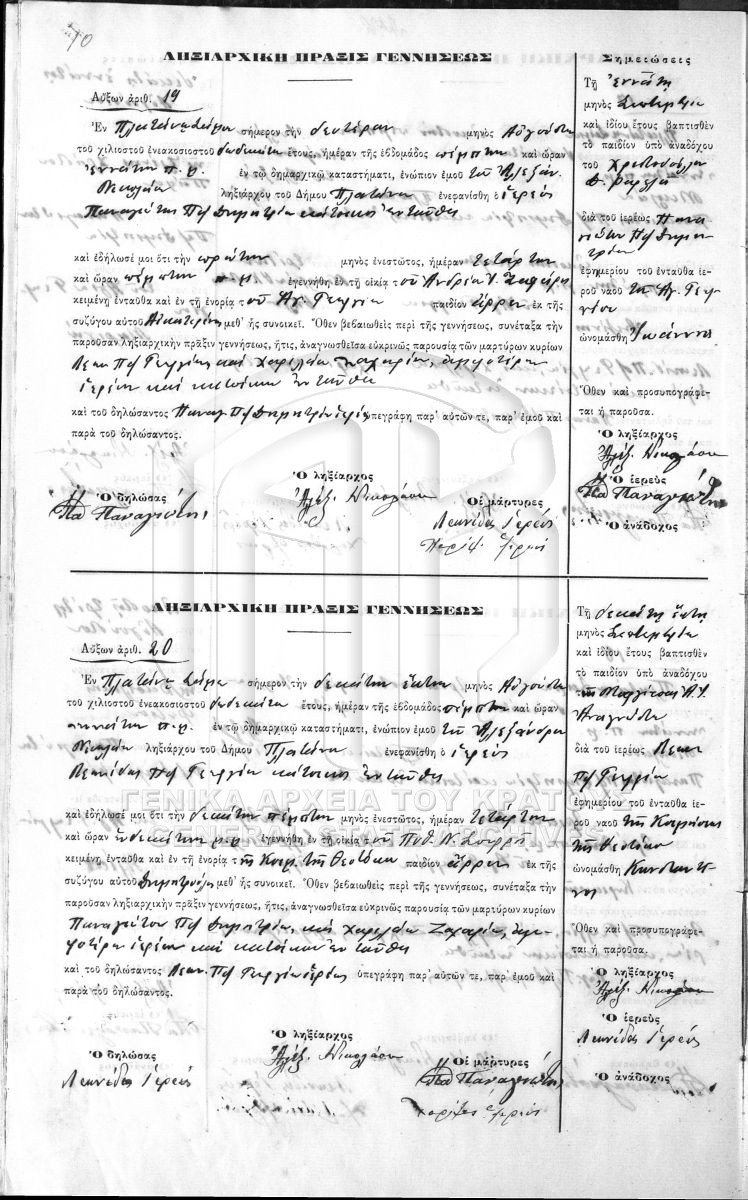 70
ΛΗΞΙΑΡΧΙΚΗ ΠΡΑΞΙΣ ΓΕΝΝΗΣΕΩΣ
Αὔξων ἀριθ. 19
Ἐν Πλατάνῳ Σάμου σήμερον τὴν δευτέραν μηνὸς Αὐγούστου
τοῦ χιλιοστοῦ ἐνεακοσιοστοῦ δωδεκάτου ἔτους, ἡμέραν τῆς ἑβδομάδος πέμπτην καὶ ὥραν
ἐννάτην π.μ. ἐν τῷ δημαρχικῷ καταστήματι, ἐνώπιον ἐμοῦ τοῦ Ἀλεξάν.
Νικολάου ληξιάρχου τοῦ Δήμου Πλατάνου ἐνεφανίσθη ὁ ἱερεύς
Παναγιώτης Πδημητρίου κάτοικος ἐνταῦθα
καὶ ἐδήλωσέ μοι ὅτι τὴν πρώτην μηνὸς ἐνεστῶτος, ἡμέραν τετάρτην
καὶ ὥραν πέμπτην π.μ. ἐγεννήθη ἐν τῇ οἰκίᾳ τοῦ Ἀνδρέα
κειμένῃ ἐνταῦθα καὶ ἐν τῇ ἐνορίᾳ τοῦ Ἁγ. Γεωργίου παιδίον ἄρρεν ἐκ τῆς
συζύγου αὐτοῦ Αἰκατερίνης μεθ' ἧς συνοικεῖ. Ὅθεν βεβαιωθεὶς περὶ τῆς γεννήσεως, συνέταξα τὴν
παροῦσαν ληξιαρχικὴν πρᾶξιν γεννήσεως, ἥτις, ἀναγνωσθεῖσα εὐκρινῶς παρουσίᾳ τῶν μαρτύρων κυρίων
Λεων. Πγεωργίου καὶ Χαριλάου Ζαχαρίου, ἀμφοτέρων
ἱερέων καὶ κατοίκων ἐνταῦθα
καὶ τοῦ δηλώσαντος Παναγ. Πδημητρίου ἱερέως ὑπεγράφη παρ' αὐτῶν τε, παρ' ἐμοῦ καὶ
παρὰ τοῦ δηλώσαντος.
Ὁ δηλώσας
Πα Παναγιώτης
Ὁ ληξίαρχος
Ἀλέξ. Νικολάου
Οἱ μάρτυρες
Λεωνίδας Ἱερεύς
Σημειώσεις
Τῇ ἐννάτῃ
μηνὸς Σεπτεμβρίου
καὶ ἰδίου ἔτους βαπτισθὲν
τὸ παιδίον ὑπὸ ἀναδόχου
τοῦ Χριστοδούλου
διὰ τοῦ ἱερέως Πανα
γιώτου Πδημη
τρίου
ἐφημερίου τοῦ ἐνταῦθα ἱε-
ροῦ ναοῦ τοῦ Ἁγ. Γεωρ
γίου
ὠνομάσθη Ἰωάννης
Ὅθεν καὶ προσυπογράφε-
ται ἡ παροῦσα.
Ὁ ληξίαρχος
Ἀλέξ. Νικολάου
Ὁ ἱερεὺς
Πα Παναγιώτης
Ὁ ἀνάδοχος
ΛΗΞΙΑΡΧΙΚΗ ΠΡΑΞΙΣ ΓΕΝΝΗΣΕΩΣ
Αὔξων ἀριθ. 20
Ἐν Πλατάνῳ Σάμου σήμερον τὴν δεκάτην ἕκτην μηνὸς Αὐγούστου
τοῦ χιλιοστοῦ ἐνεακοσιοστοῦ δωδεκάτου ἔτους, ἡμέραν τῆς ἑβδομάδος πέμπτην καὶ ὥραν
ἐννάτην π.μ. ἐν τῷ δημαρχικῷ καταστήματι, ἐνώπιον ἐμοῦ τοῦ Ἀλεξάνδρου
Νικολάου ληξιάρχου τοῦ Δήμου Πλατάνου ἐνεφανίσθη ὁ ἱερεύς
Λεωνίδας Πγεωργίου κάτοικος ἐνταῦθα
καὶ ἐδήλωσέ μοι ὅτι τὴν δεκάτην πέμπτην μηνὸς ἐνεστῶτος, ἡμέραν τετάρτην
καὶ ὥραν ἑνδεκάτην μ.μ. ἐγεννήθη ἐν τῇ οἰκίᾳ τοῦ Ποθ. Ν.
κειμένῃ ἐνταῦθα καὶ ἐν τῇ ἐνορίᾳ τῆς Κοιμ. τῆς Θεοτόκου παιδίον ἄρρεν ἐκ τῆς
συζύγου αὐτοῦ Δημητρούλας μεθ' ἧς συνοικεῖ. Ὅθεν βεβαιωθεὶς περὶ τῆς γεννήσεως, συνέταξα τὴν
παροῦσαν ληξιαρχικὴν πρᾶξιν γεννήσεως, ἥτις, ἀναγνωσθεῖσα εὐκρινῶς παρουσίᾳ τῶν μαρτύρων κυρίων
Παναγιώτου Πδημητρίου, καὶ Χαριλάου Ζαχαρίου, ἀμ
φοτέρων ἱερέων καὶ κατοίκων ἐνταῦθα
καὶ τοῦ δηλώσαντος Λεων. Πγεωργίου ἱερέως ὑπεγράφη παρ' αὐτῶν τε, παρ' ἐμοῦ καὶ
παρὰ τοῦ δηλώσαντος.
Ὁ δηλώσας
Λεωνίδας Ἱερεύς
Ὁ ληξίαρχος
Ἀλέξ. Νικολάου
Οἱ μάρτυρες
Πα Παναγιώτης
Τῇ δεκάτῃ ἕκτῃ
μηνὸς Σεπτεμβρίου
καὶ ἰδίου ἔτους βαπτισθὲν
τὸ παιδίον ὑπὸ ἀναδόχου
διὰ τοῦ ἱερέως Λεων.
Πγεωργίου
ἐφημερίου τοῦ ἐνταῦθα ἱε-
ροῦ ναοῦ τῆς Κοιμήσεως
τῆς Θεοτόκου
ὠνομάσθη Κωνσταντῖ
νος
Ὅθεν καὶ προσυπογράφε-
ται ἡ παροῦσα.
Ὁ ληξίαρχος
Ἀλέξ. Νικολάου
Ὁ ἱερεὺς
Λεωνίδας Ἱερεύς
Ὁ ἀνάδοχος
ΓΕΝΙΚΑ ΑΡΧΕΙΑ ΤΟΥ ΚΡΑΤΟΥΣ